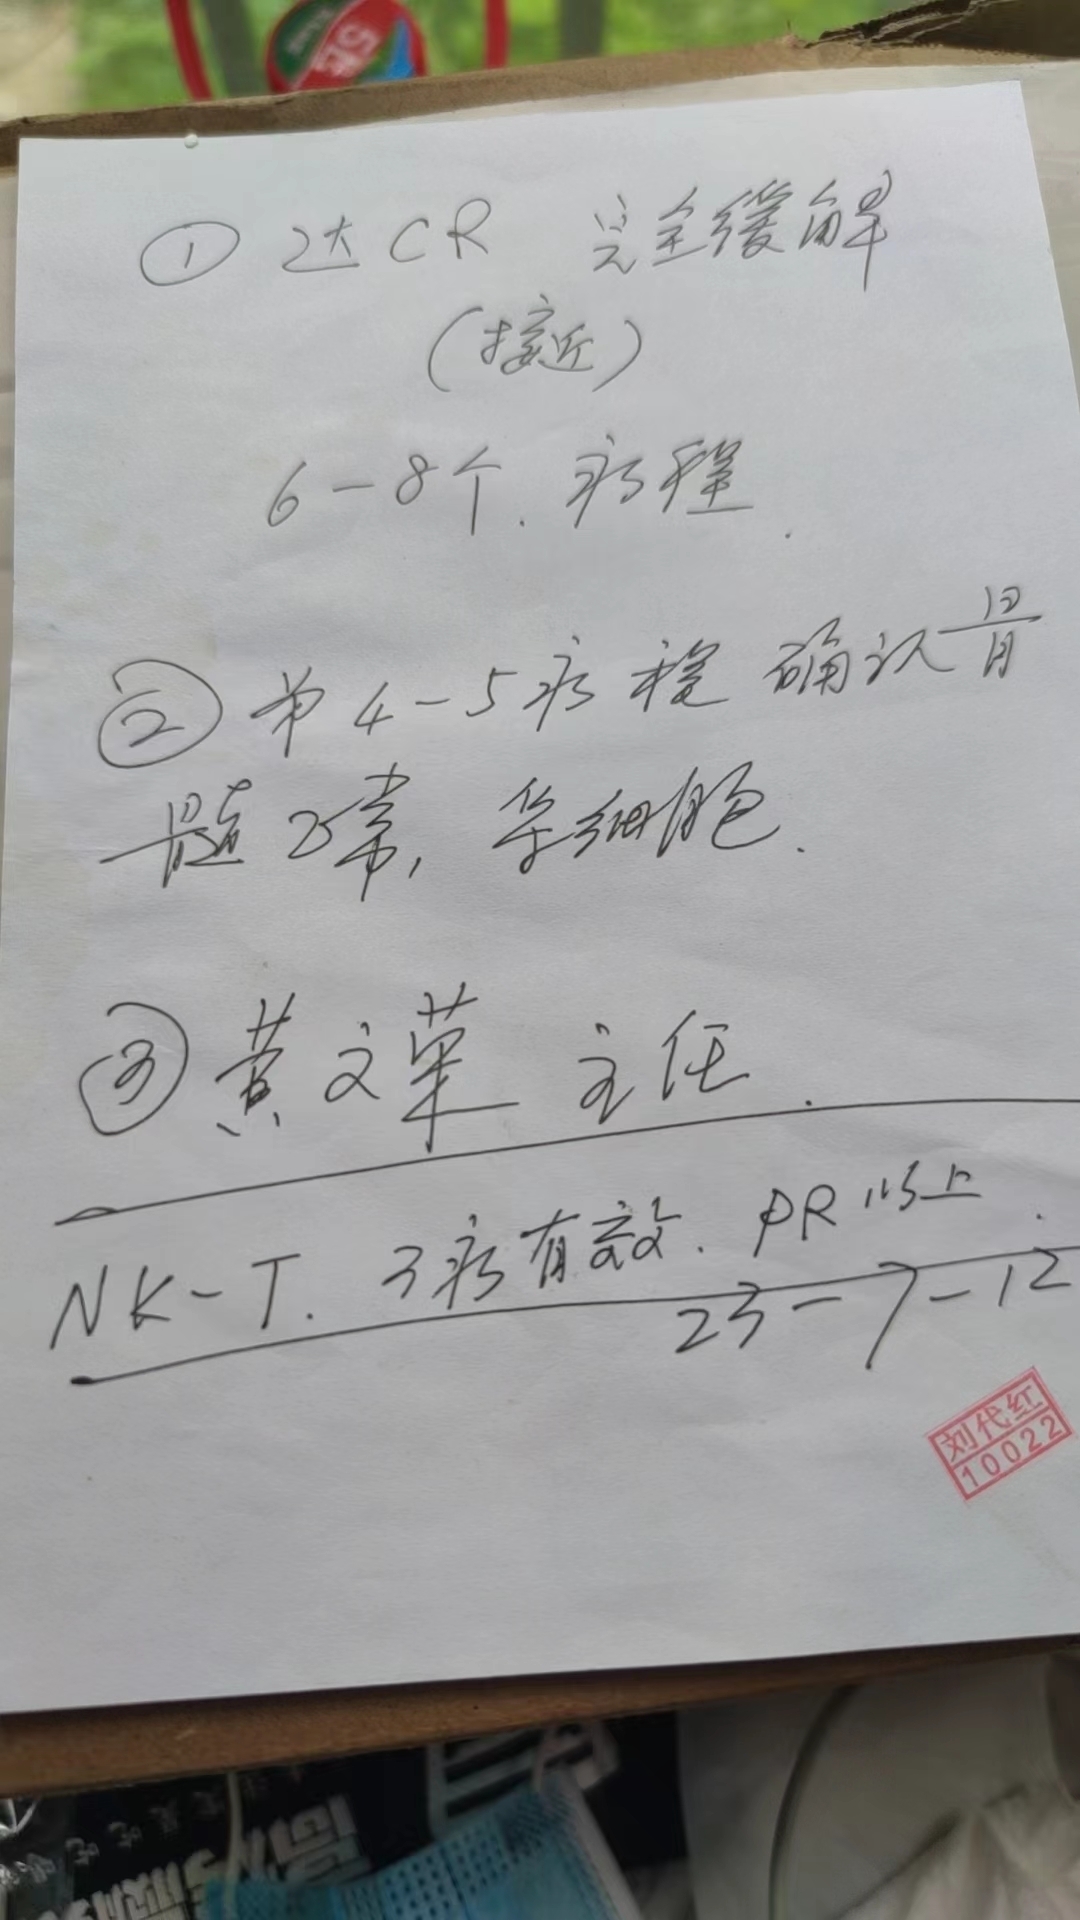 ① 达CR 完全缓解
(接近)
6-8个.疗程.
② 第4-5疗程 确认骨
髓正常,采细胞.
③ 黄文荣 主任.
NK-T. 3疗有效. PR以上.
23-7-12
刘代红
10022